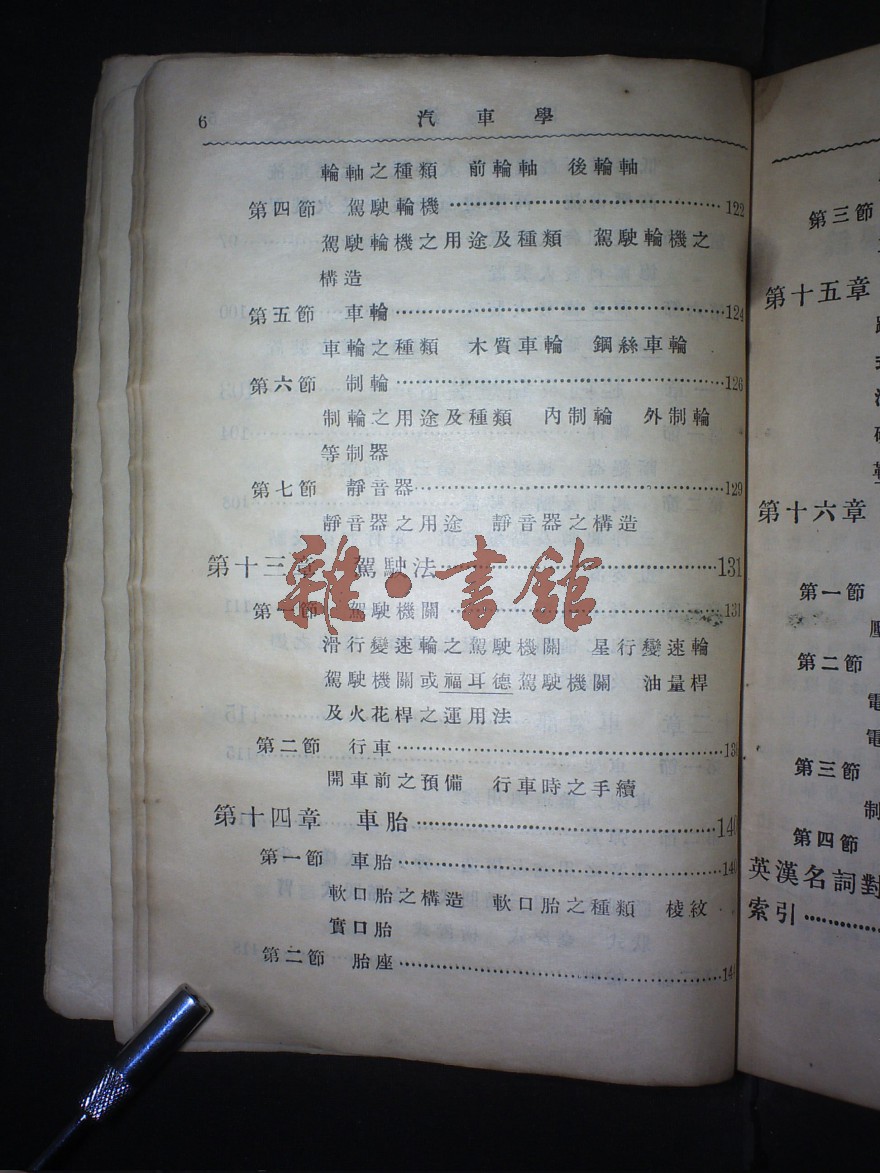 6 汽車學
輪軸之種類 前輪軸 後輪軸
第四節 駕駛輪機……122
駕駛輪機之用途及種類 駕駛輪機之
構造
第五節 車輪……124
車輪之種類 木質車輪 鋼絲車輪
第六節 制輪……126
制輪之用途及種類 內制輪 外制輪
等制器
第七節 靜音器……129
靜音器之用途 靜音器之構造
第十三章 駕駛法……131
雜·書館
第一節 駕駛機關……131
滑行變速輪之駕駛機關 星行變速輪
駕駛機關或福耳德駕駛機關 油量桿
及火花桿之運用法
第二節 行車……
開車前之預備 行車時之手續
第十四章 車胎……140
第一節 車胎……140
軟口胎之構造 軟口胎之種類 棱紋
實口胎
第二節 胎座……
第三節
第十五章
第十六章
第一節
第二節
第三節
第四節
英漢名詞對
索引……